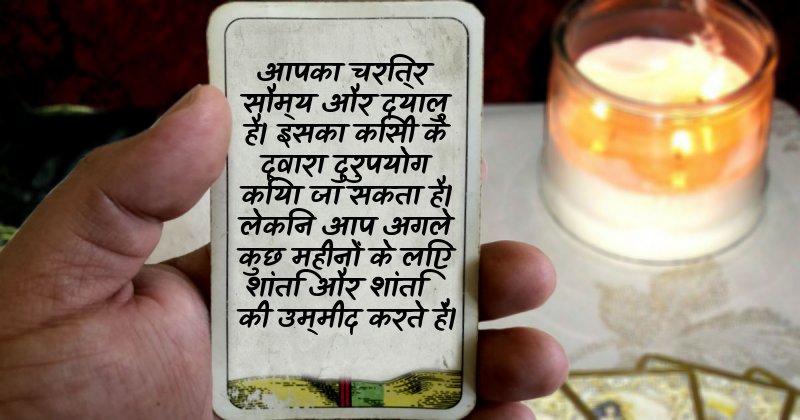 आपका चरित्र
सौम्य और दयालु
है। इसका किसी के
द्वारा दुरुपयोग
किया जा सकता है।
लेकिन आप अगले
कुछ महीनों के लिए
शांति और शांति
की उम्मीद करते हैं।